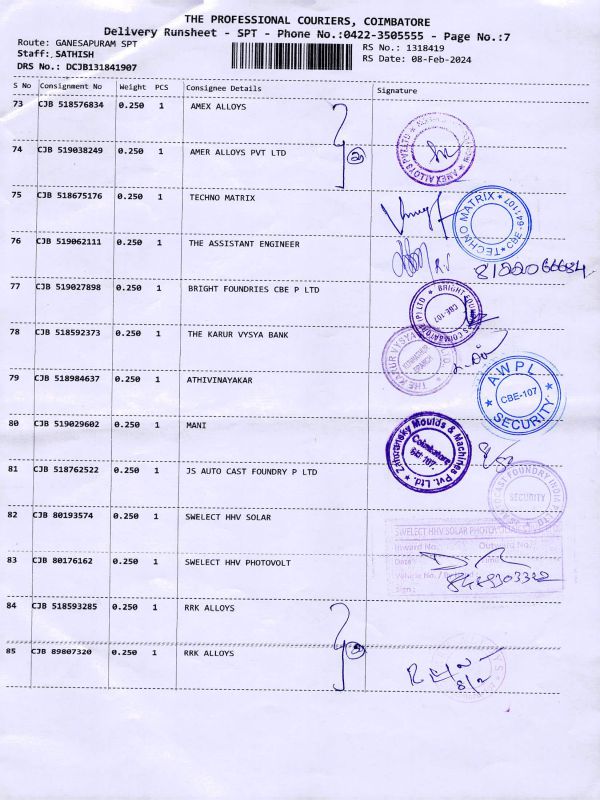 THE PROFESSIONAL COURIERS, COIMBATORE
Delivery Runsheet - SPT - Phone No.:0422-3505555 - Page No.:7
Route: GANESAPURAM SPT
Staff: SATHISH
DRS No.: DCJB131841907
RS No.: 1318419
RS Date: 08-Feb-2024
S No Consignment No Weight PCS Consignee Details Signature
73 CJB 518576834 0.250 1 AMEX ALLOYS
74 CJB 519038249 0.250 1 AMER ALLOYS PVT LTD
75 CJB 518675176 0.250 1 TECHNO MATRIX
TECHNO MATRIX CBE-641107
76 CJB 519062111 0.250 1 THE ASSISTANT ENGINEER
77 CJB 519027898 0.250 1 BRIGHT FOUNDRIES CBE P LTD
CBE-107
78 CJB 518592373 0.250 1 THE KARUR VYSYA BANK
THE KARUR VYSYA
79 CJB 518984637 0.250 1 ATHIVINAYAKAR
AWPL CBE-107 SECURITY
80 CJB 519029602 0.250 1 MANI
Moulds & Machines Pvt. Ltd.
Coimbatore
81 CJB 518762522 0.250 1 JS AUTO CAST FOUNDRY P LTD
SECURITY
82 CJB 80193574 0.250 1 SWELECT HHV SOLAR
SWELECT HHV SOLAR
Inward No. Outward No.
83 CJB 80176162 0.250 1 SWELECT HHV PHOTOVOLT
Date
Vehicle No.
Sign
84 CJB 518593285 0.250 1 RRK ALLOYS
85 CJB 89807320 0.250 1 RRK ALLOYS